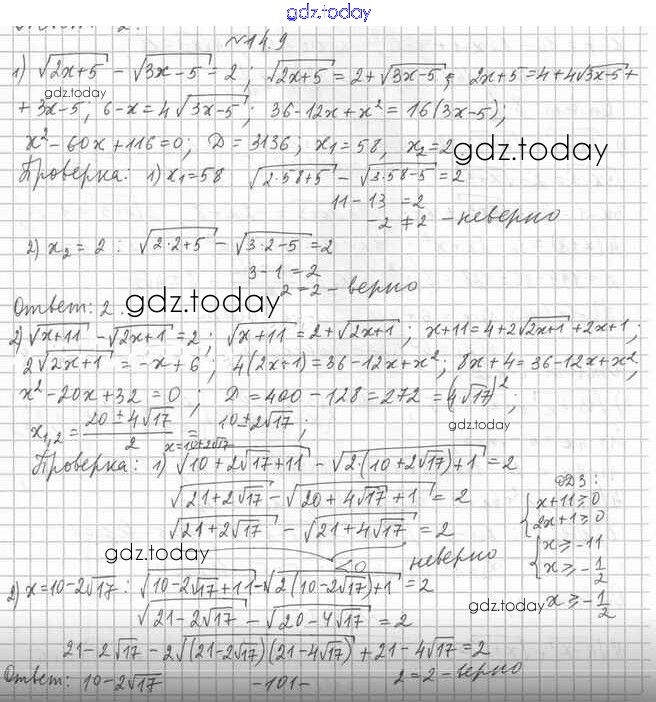 gdz.today
№14.9
1) √(2x+5) - √(3x-5) = 2; √(2x+5) = 2+√(3x-5); 2x+5=4+4√(3x-5)+
gdz.today
+3x-5; 6-x=4√(3x-5); 36-12x+x²=16(3x-5);
x²-60x+116=0; D=3136; x₁=58, x₂=2
gdz.today
Проверка: 1) x₁=58 √(2·58+5) - √(3·58-5) = 2
11-13 =2
-2≠2 - неверно
2) x₂=2: √(2·2+5) - √(3·2-5) =2
3-1=2
2=2 - верно
Ответ: 2.
gdz.today
2) √(x+11) - √(2x+1) =2; √(x+11) =2+√(2x+1); x+11=4+2√(2x+1)+2x+1;
2√(2x+1) = -x+6; 4(2x+1)=36-12x+x²; 8x+4=36-12x+x²;
x²-20x+32=0; D=400-128=272=(4√17)²;
x₁,₂ = (20±4√17)/2 = 10±2√17;
gdz.today
x=10+2√17
Проверка: 1) √(10+2√17+11) - √(2·(10+2√17)+1) =2
√(21+2√17) - √(20+4√17+1) = 2
√(21+2√17) - √(21+4√17) = 2
<0 неверно
ОДЗ:
{x+11≥0
2x+1≥0
{x≥-11
x≥-1/2
x≥-1/2
gdz.today
gdz.today
2) x=10-2√17: √(10-2√17+11) - √(2(10-2√17)+1) =2
√(21-2√17) - √(20-4√17) = 2
21-2√17 - 2√((21-2√17)(21-4√17)) + 21-4√17 =2
2=2 - верно
Ответ: 10-2√17
-101-